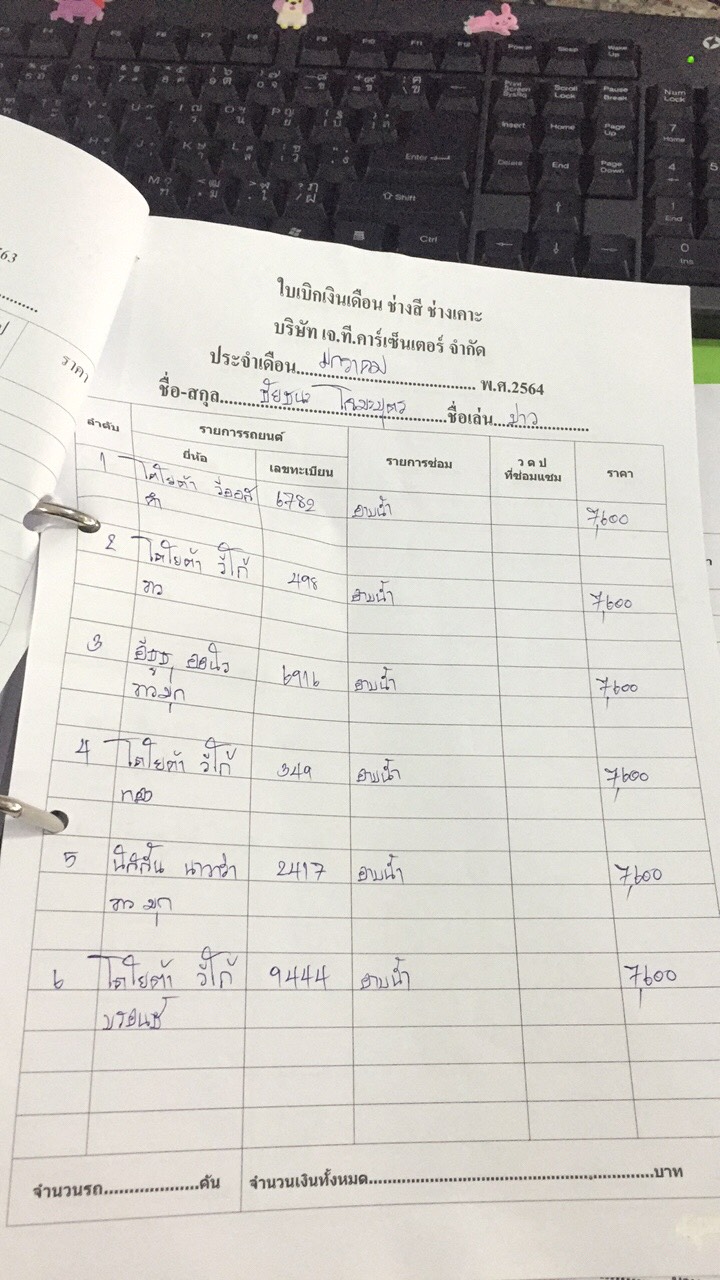 ใบเบิกเงินเดือน ช่างสี ช่างเคาะ
บริษัท เจ.ที.คาร์เซ็นเตอร์ จำกัด
ประจำเดือน.....มกราคม..... พ.ศ.2564
ชื่อ-สกุล.....ชัยชนะ.....ชื่อเล่น...ขาว.....
ลำดับ รายการรถยนต์ รายการซ่อม ว ด ป ที่ซ่อมแซม ราคา
ยี่ห้อ เลขทะเบียน
1 โตโยต้า วีออส 6782 อาบน้ำ 7,600
ดำ
2 โตโยต้า วีโก้ 498 อาบน้ำ 7,600
ขาว
3 อีซูซุ ออนิว 6916 อาบน้ำ 7,600
ขาวมุก
4 โตโยต้า วีโก้ 349 อาบน้ำ 7,600
ทอง
5 นิสสัน นาวาร่า 2417 อาบน้ำ 7,600
ขาว มุก
6 โตโยต้า วีโก้ 9444 อาบน้ำ 7,600
บรอนซ์
จำนวนรถ....................คัน จำนวนเงินทั้งหมด....................บาท
ราคา